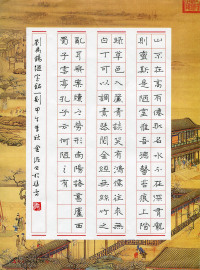 山不在高有僊則名水不在深有龍
則靈斯是陋室惟吾德馨苔痕上階
綠草色入簾青談笑有鴻儒往來無
白丁可以調素琴閱金經無絲竹之
亂耳無案牘之勞形南陽諸葛廬西
蜀子雲亭孔子云何陋之有
劉禹錫陋室銘一則甲午